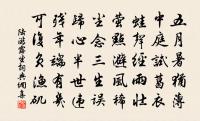 五月暑猶薄
中庭試葛衣
蛙聲經雨壮
螢點避風稀
尘念三生誤
歸心半世違
殘年端有幾
可復負漁磯
陸游露坐詞典網書